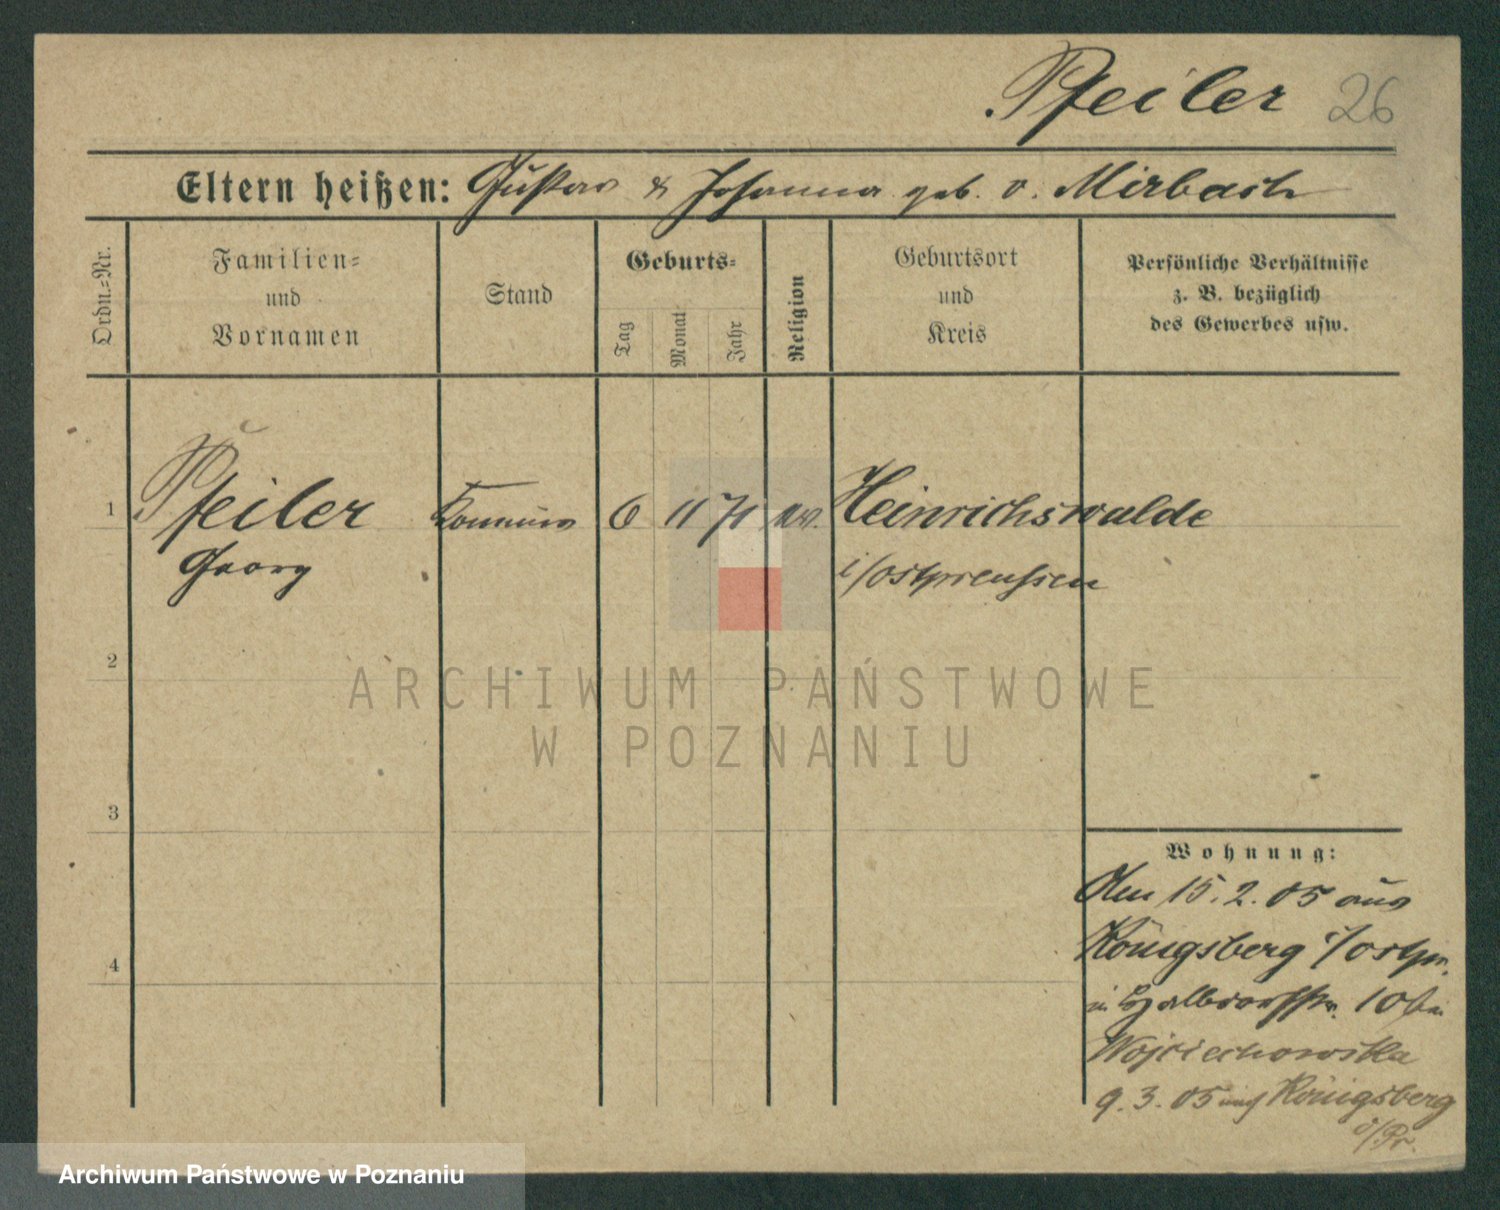 Pfeiler 26
Eltern heißen: Gustav & Johanna geb. v. Mirbach
Ordn.=Nr.
Familien=
und
Vornamen
Stand
Geburts=
Tag
Monat
Jahr
Religion
Geburtsort
und
Kreis
Persönliche Verhältnisse
z. B. bezüglich
des Gewerbes usw.
1 Pfeiler 6 11 71 Heinrichswalde
Georg i/Ostpreußen
2
ARCHIWUM PAŃSTWOWE
W POZNANIU
3
Wohnung:
Den 15.2.05 aus
Königsberg i/Ostpr.
4
in Halbdorfstr. 10 bei
Wojciechowska
9.3.05 nach Königsberg
o/Pr.
Archiwum Państwowe w Poznaniu